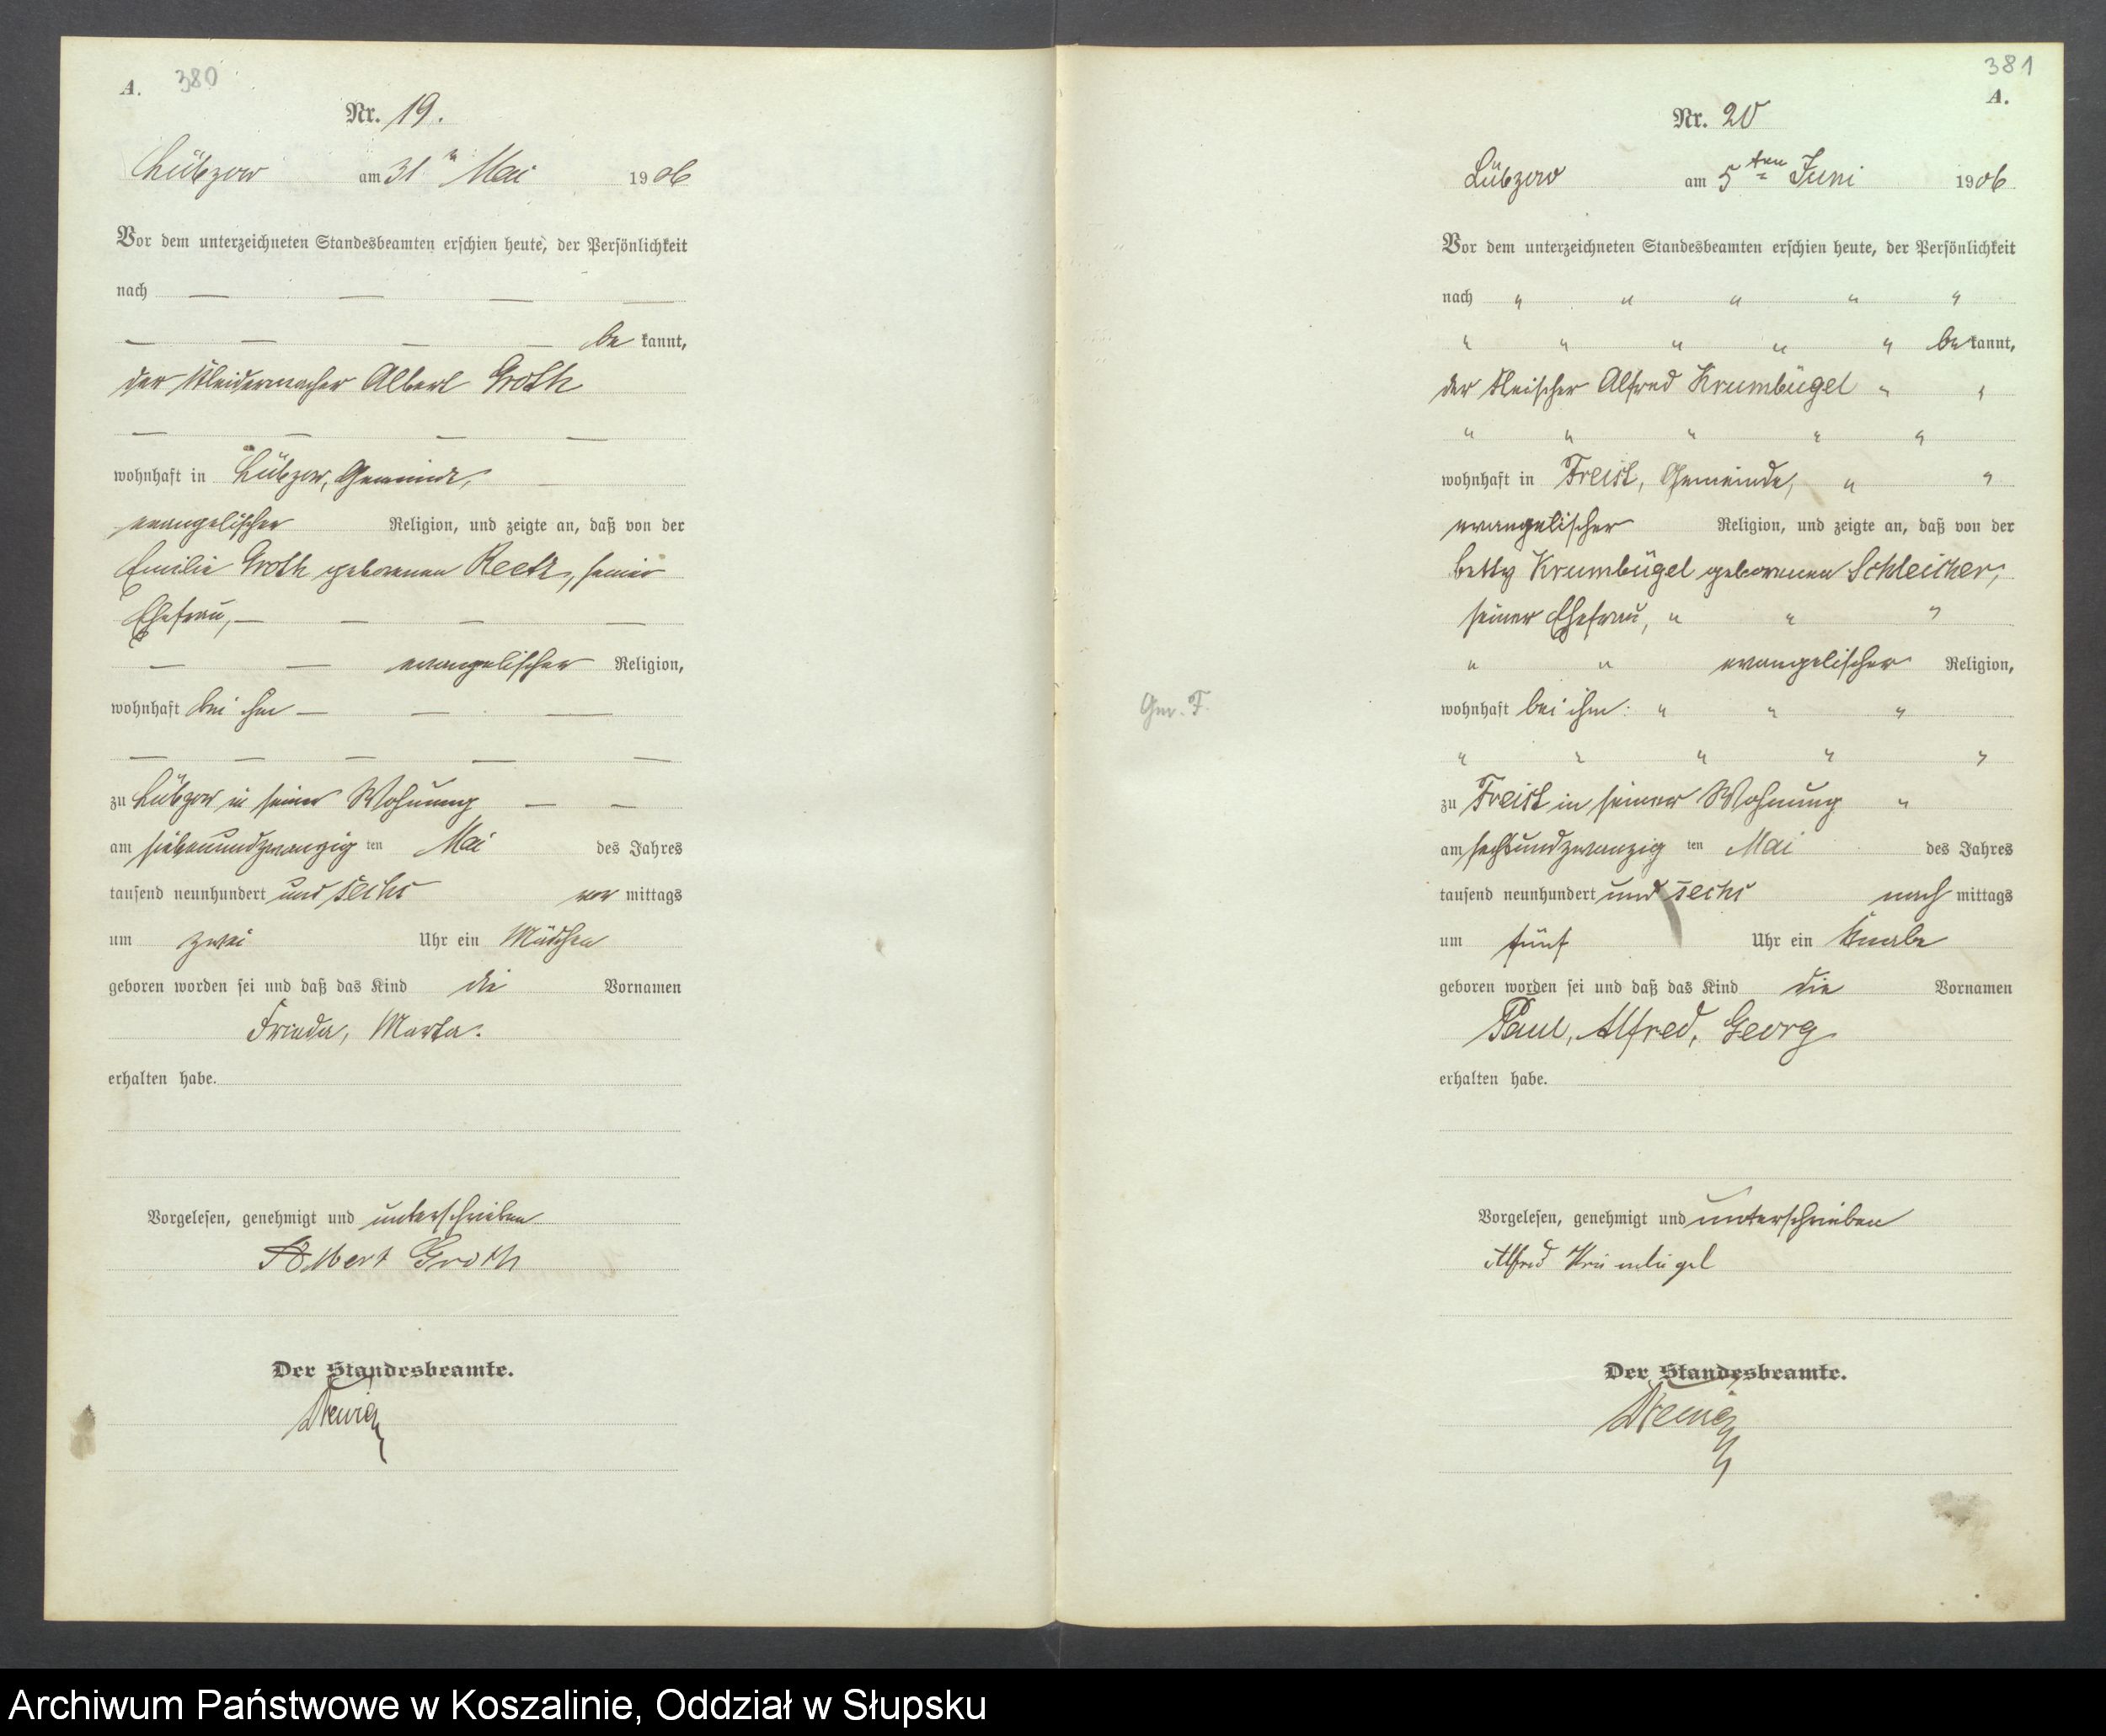 A. 380
Nr. 19.
Lübzow am 31 n Mai 1906
Vor dem unterzeichneten Standesbeamten erschien heute, der Persönlichkeit
nach — — — —
— — — — be kannt,
der Kleidermacher Albert Groth
— — — —
wohnhaft in Lübzow, Gemeinde, —
evangelischer Religion, und zeigte an, daß von der
Emilie Groth geborenen Reetz, seiner
Ehefrau, — — — —
— — evangelischer Religion,
wohnhaft bei ihm — — —
— — — — —
zu Lübzow in seiner Wohnung — —
am siebenundzwanzig ten Mai des Jahres
tausend neunhundert und sechs vor mittags
um zwei Uhr ein Mädchen
geboren worden sei und daß das Kind die Vornamen
Frieda, Marta.
erhalten habe.
Vorgelesen, genehmigt und unterschrieben
Albert Groth
Der Standesbeamte.
381
A.
Nr. 20
Lübzow am 5ten Juni 1906
Vor dem unterzeichneten Standesbeamten erschien heute, der Persönlichkeit
nach " " " " "
" " " " " bekannt,
der Fleischer Alfred Krumbügel " "
" " " " "
wohnhaft in Freist, Gemeinde, " "
evangelischer Religion, und zeigte an, daß von der
Betty Krumbügel geborenen Schleicher,
seiner Ehefrau, " " "
" " evangelischer Religion,
Gem. F. wohnhaft bei ihm: " " "
" " " " "
zu Freist in seiner Wohnung "
am sechsundzwanzig ten Mai des Jahres
tausend neunhundert und sechs nach mittags
um fünf Uhr ein Knabe
geboren worden sei und daß das Kind die Vornamen
Paul, Alfred, Georg
erhalten habe.
Vorgelesen, genehmigt und unterschrieben
Alfred Krümbügel
Der Standesbeamte.
Archiwum Państwowe w Koszalinie, Oddział w Słupsku